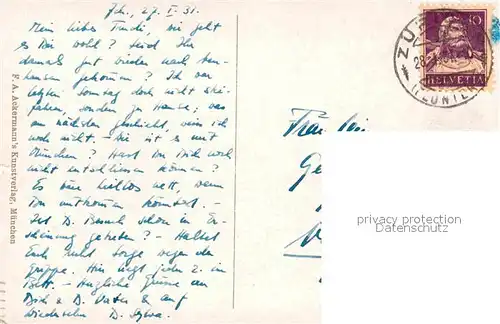 Zch., 27. I. 31.
Mein liebes Trudi, wie geht
es Dir wohl? Seid Ihr
damals gut wieder nach
hausen gekommen? Ich war
letzten Sonntag doch nicht Ski-
fahren, sondern zu Hause; was
am nächsten geschieht, weiss ich
noch nicht. - Wie ist es mit
München? Hast Du Dich noch
nicht entschliessen können?
Es wäre nett, wenn
Du mitkommen könntest. -
Ist D. Besuch schon in Er-
scheinung getreten? - Haltet
Euch nicht Sorge wegen der
Grippe. Hier liegt jeder 2. im
Bett. - Herzliche Grüsse an
Dich & D. Vater & auf
Wiedersehen D. Sylva.
F. A. Ackermann's Kunstverlag, München
Fräulein
10
HELVETIA
privacy protection
watermark